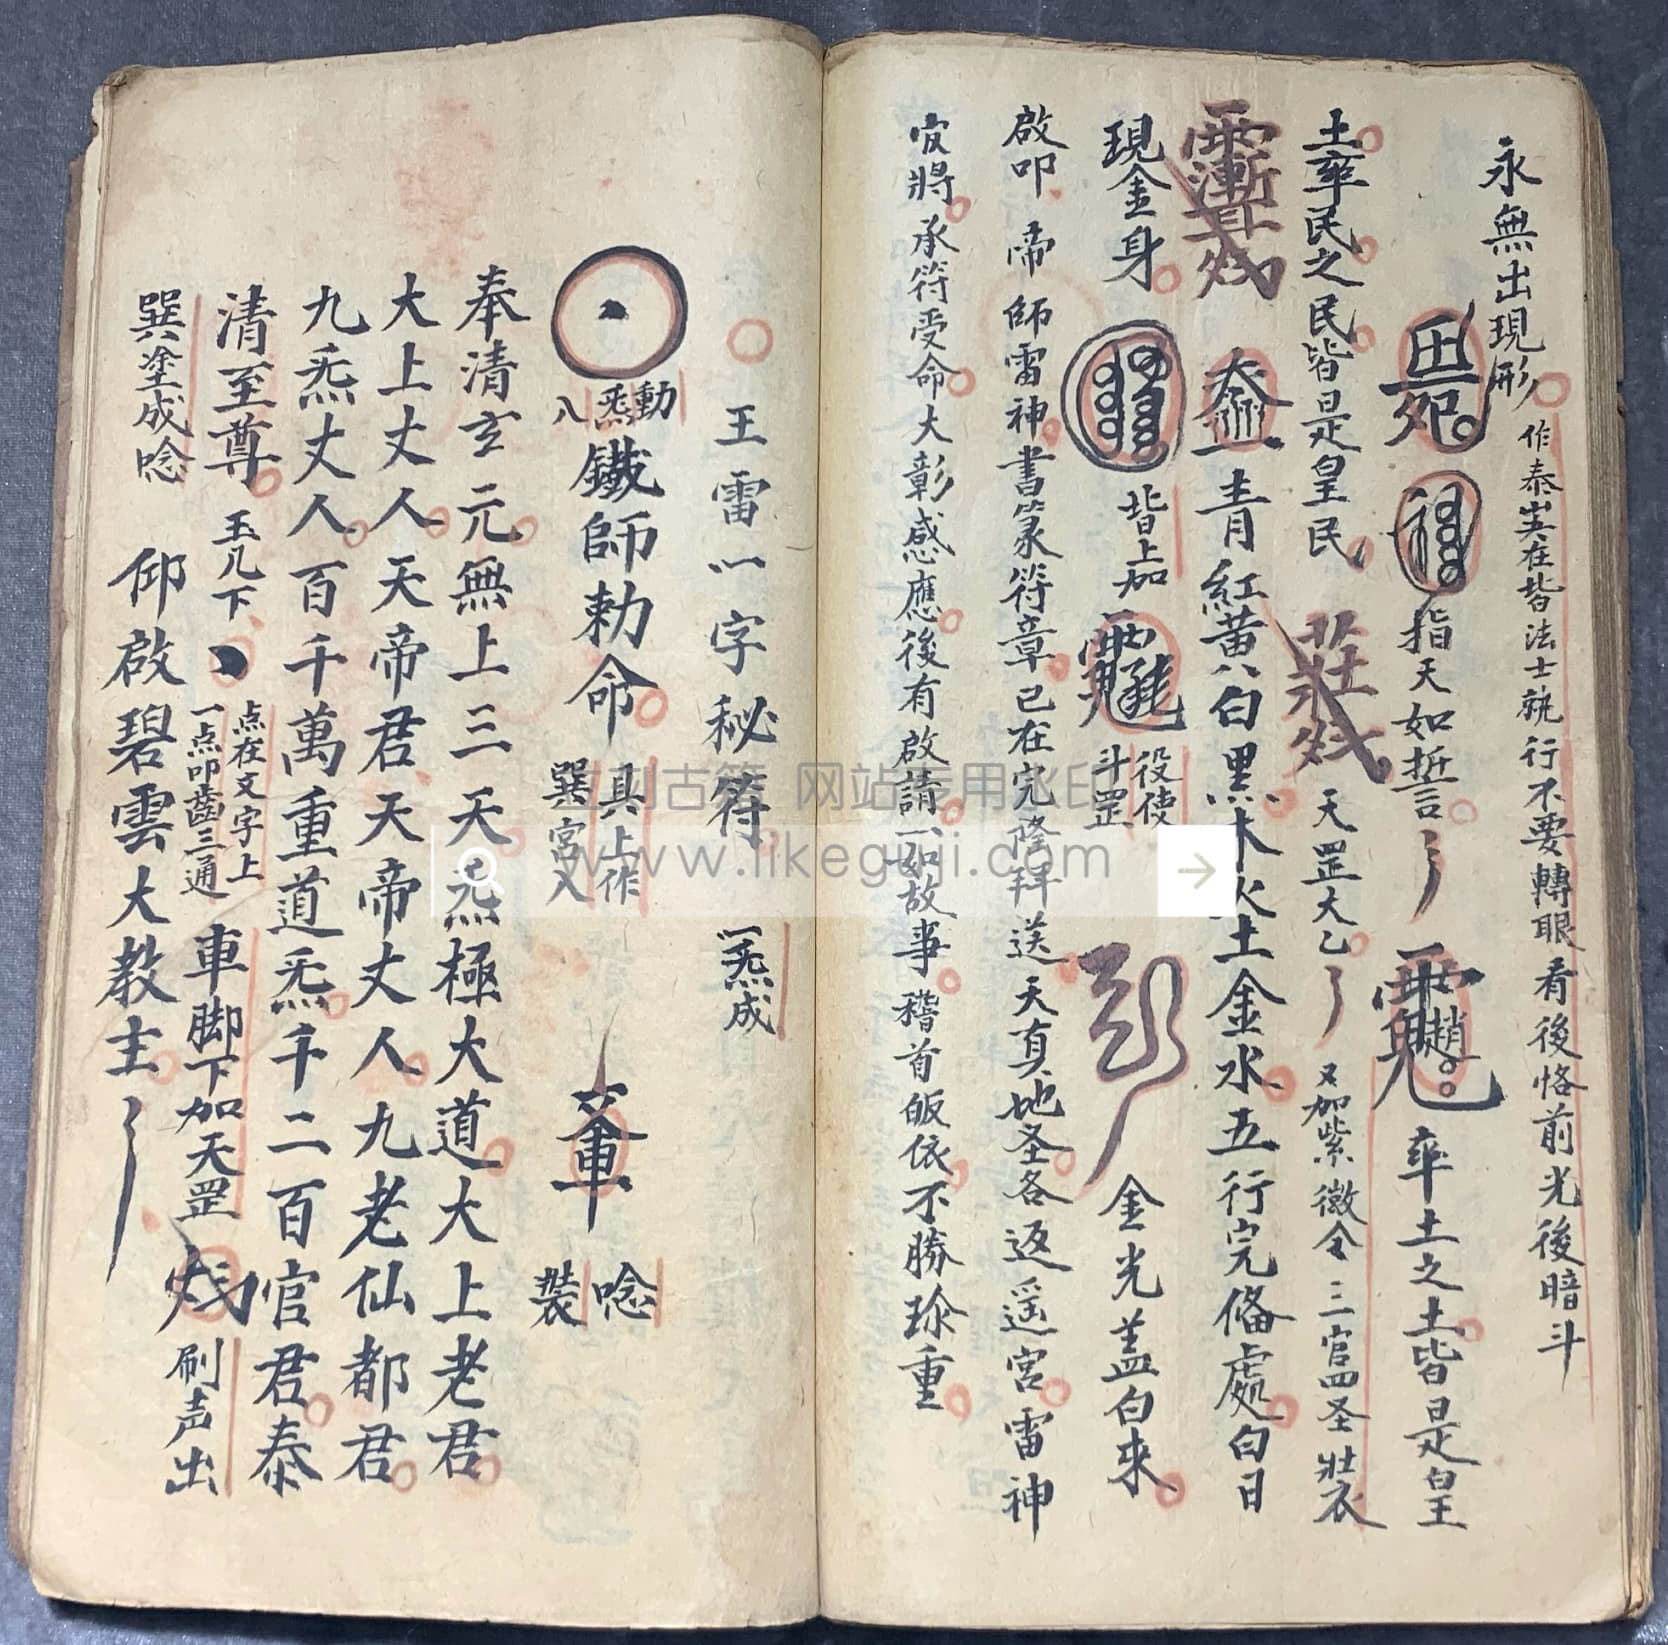 永無出現形 作泰𡵆在皆法士執行不要轉眼看後恪前光後暗斗
指天如誓言 率土之土皆是皇
土率民之民皆是皇民 天罡大乙 又加紫微令三官四圣壯衣
青紅黃八白黑木火土金水五行完俻處白日
現金身 皆上加 役使斗罡 金光盖白来
啟叩帝師雷神書篆符章已在完隆拜送天真地圣各返遥宮雷神
官將承符受命大彰感應後有啟請一如故事稽首皈依不勝珍重
王雷一字秘符 一炁成
動炁入 鐵師勅命 具上作巽宮入 唸裝
奉清玄元無上三天炁極大道大上老君
大上丈人天帝君天帝丈人九老仙都君
九炁丈人百千萬重道炁千二百官君泰
清至尊 玉几下 点在文字上一点叩齒三通 車脚下加天罡 刷声出
巽塗成唸 仰啟碧雲大教主
立刻古籍 网站专用水印
www.likeguji.com